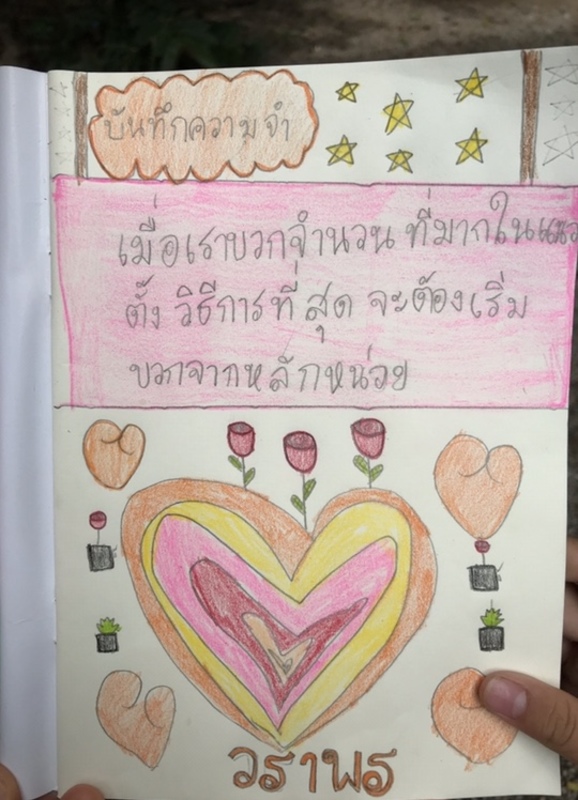 บันทึกความจำ
เมื่อเราบวกจำนวน ที่มากในแนว
ตั้ง วิธีการที่สุด จะต้องเริ่ม
บวกจากหลักหน่อย
วราพร